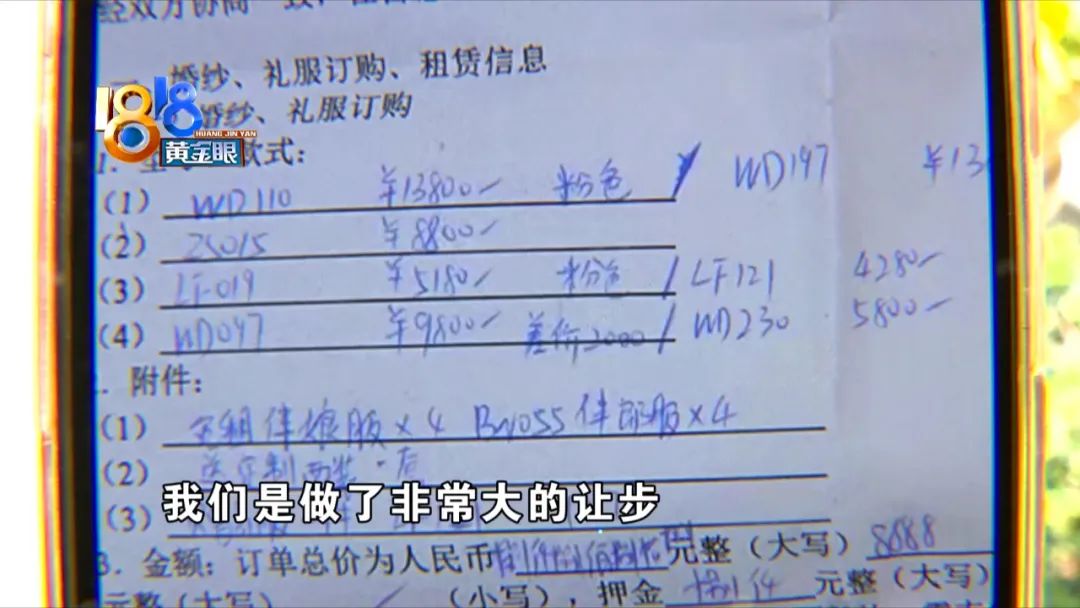 经双方协商一致
一、婚纱、礼服订购、租赁信息
1818
HUANG JIN YAN
黄金眼
婚纱、礼服订购
1. 款式:
(1) WD110 ¥13800 粉色 / WD197 ¥13
(2) ZS015 ¥8800
(3) LF019 ¥5180 粉色 / LF121 4280
(4) WD097 ¥9800 差价2000 / WD230 5800
2. 附件:
(1) 租伴娘服×4 BW055 伴郎服×4
(2) 定制西装
(3)
我们是做了非常大的让步
3. 金额:订单总价为人民币 元整(大写) 8888
元整(大写) (小写),押金 元整(大写)